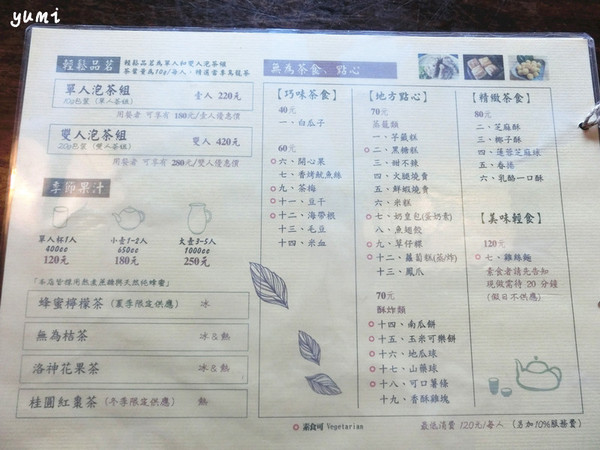 yumi
輕鬆品茗
輕鬆品茗為單人和雙人泡茶組
茶葉量為10g/每人、精選當季烏龍茶
單人泡茶組 壹人 220元
10g包裝(單人茶組)
用餐者 可享有 180元/壹人優惠價
雙人泡茶組 雙人 420元
20g包裝(雙人茶組)
用餐者 可享有 280元/雙人優惠價
季節果汁
單人杯1人 小壺1-2人 大壺3-5人
400cc 650cc 1000cc
120元 180元 250元
蜂蜜檸檬茶(夏季限定供應) 冰
無為桔茶 冰&熱
洛神花果茶 冰&熱
桂圓紅棗茶(冬季限定供應) 熱
無為茶食、點心
【巧味茶食】
40元
一、白瓜子
60元
六、開心果
七、香烤魷魚絲
九、茶梅
十一、豆干
十二、海帶根
十三、毛豆
十四、米血
【地方點心】
70元
蒸籠類
一、芋籤糕
二、黑糖糕
三、甜不辣
四、火腿燒賣
五、鮮蝦燒賣
六、米糕
七、奶皇包(蛋奶素)
八、魚翅餃
九、草仔粿
十二、蘿蔔糕(蒸/炸)
十三、鳳爪
70元
酥炸類
十四、南瓜餅
十五、玉米可樂餅
十六、地瓜球
十七、山藥球
十八、可口薯條
十九、香酥雞塊
【精緻茶食】
80元
二、芝麻酥
三、椰子酥
四、蓮蓉芝麻球
五、春捲
六、乳酪一口酥
【美味輕食】
120元
七、雞絲麵
素食者請先告知
現做需待 20 分鐘
(假日不供應)
素食可 Vegetarian
最低消費 120元/每人 (另加10%服務費)